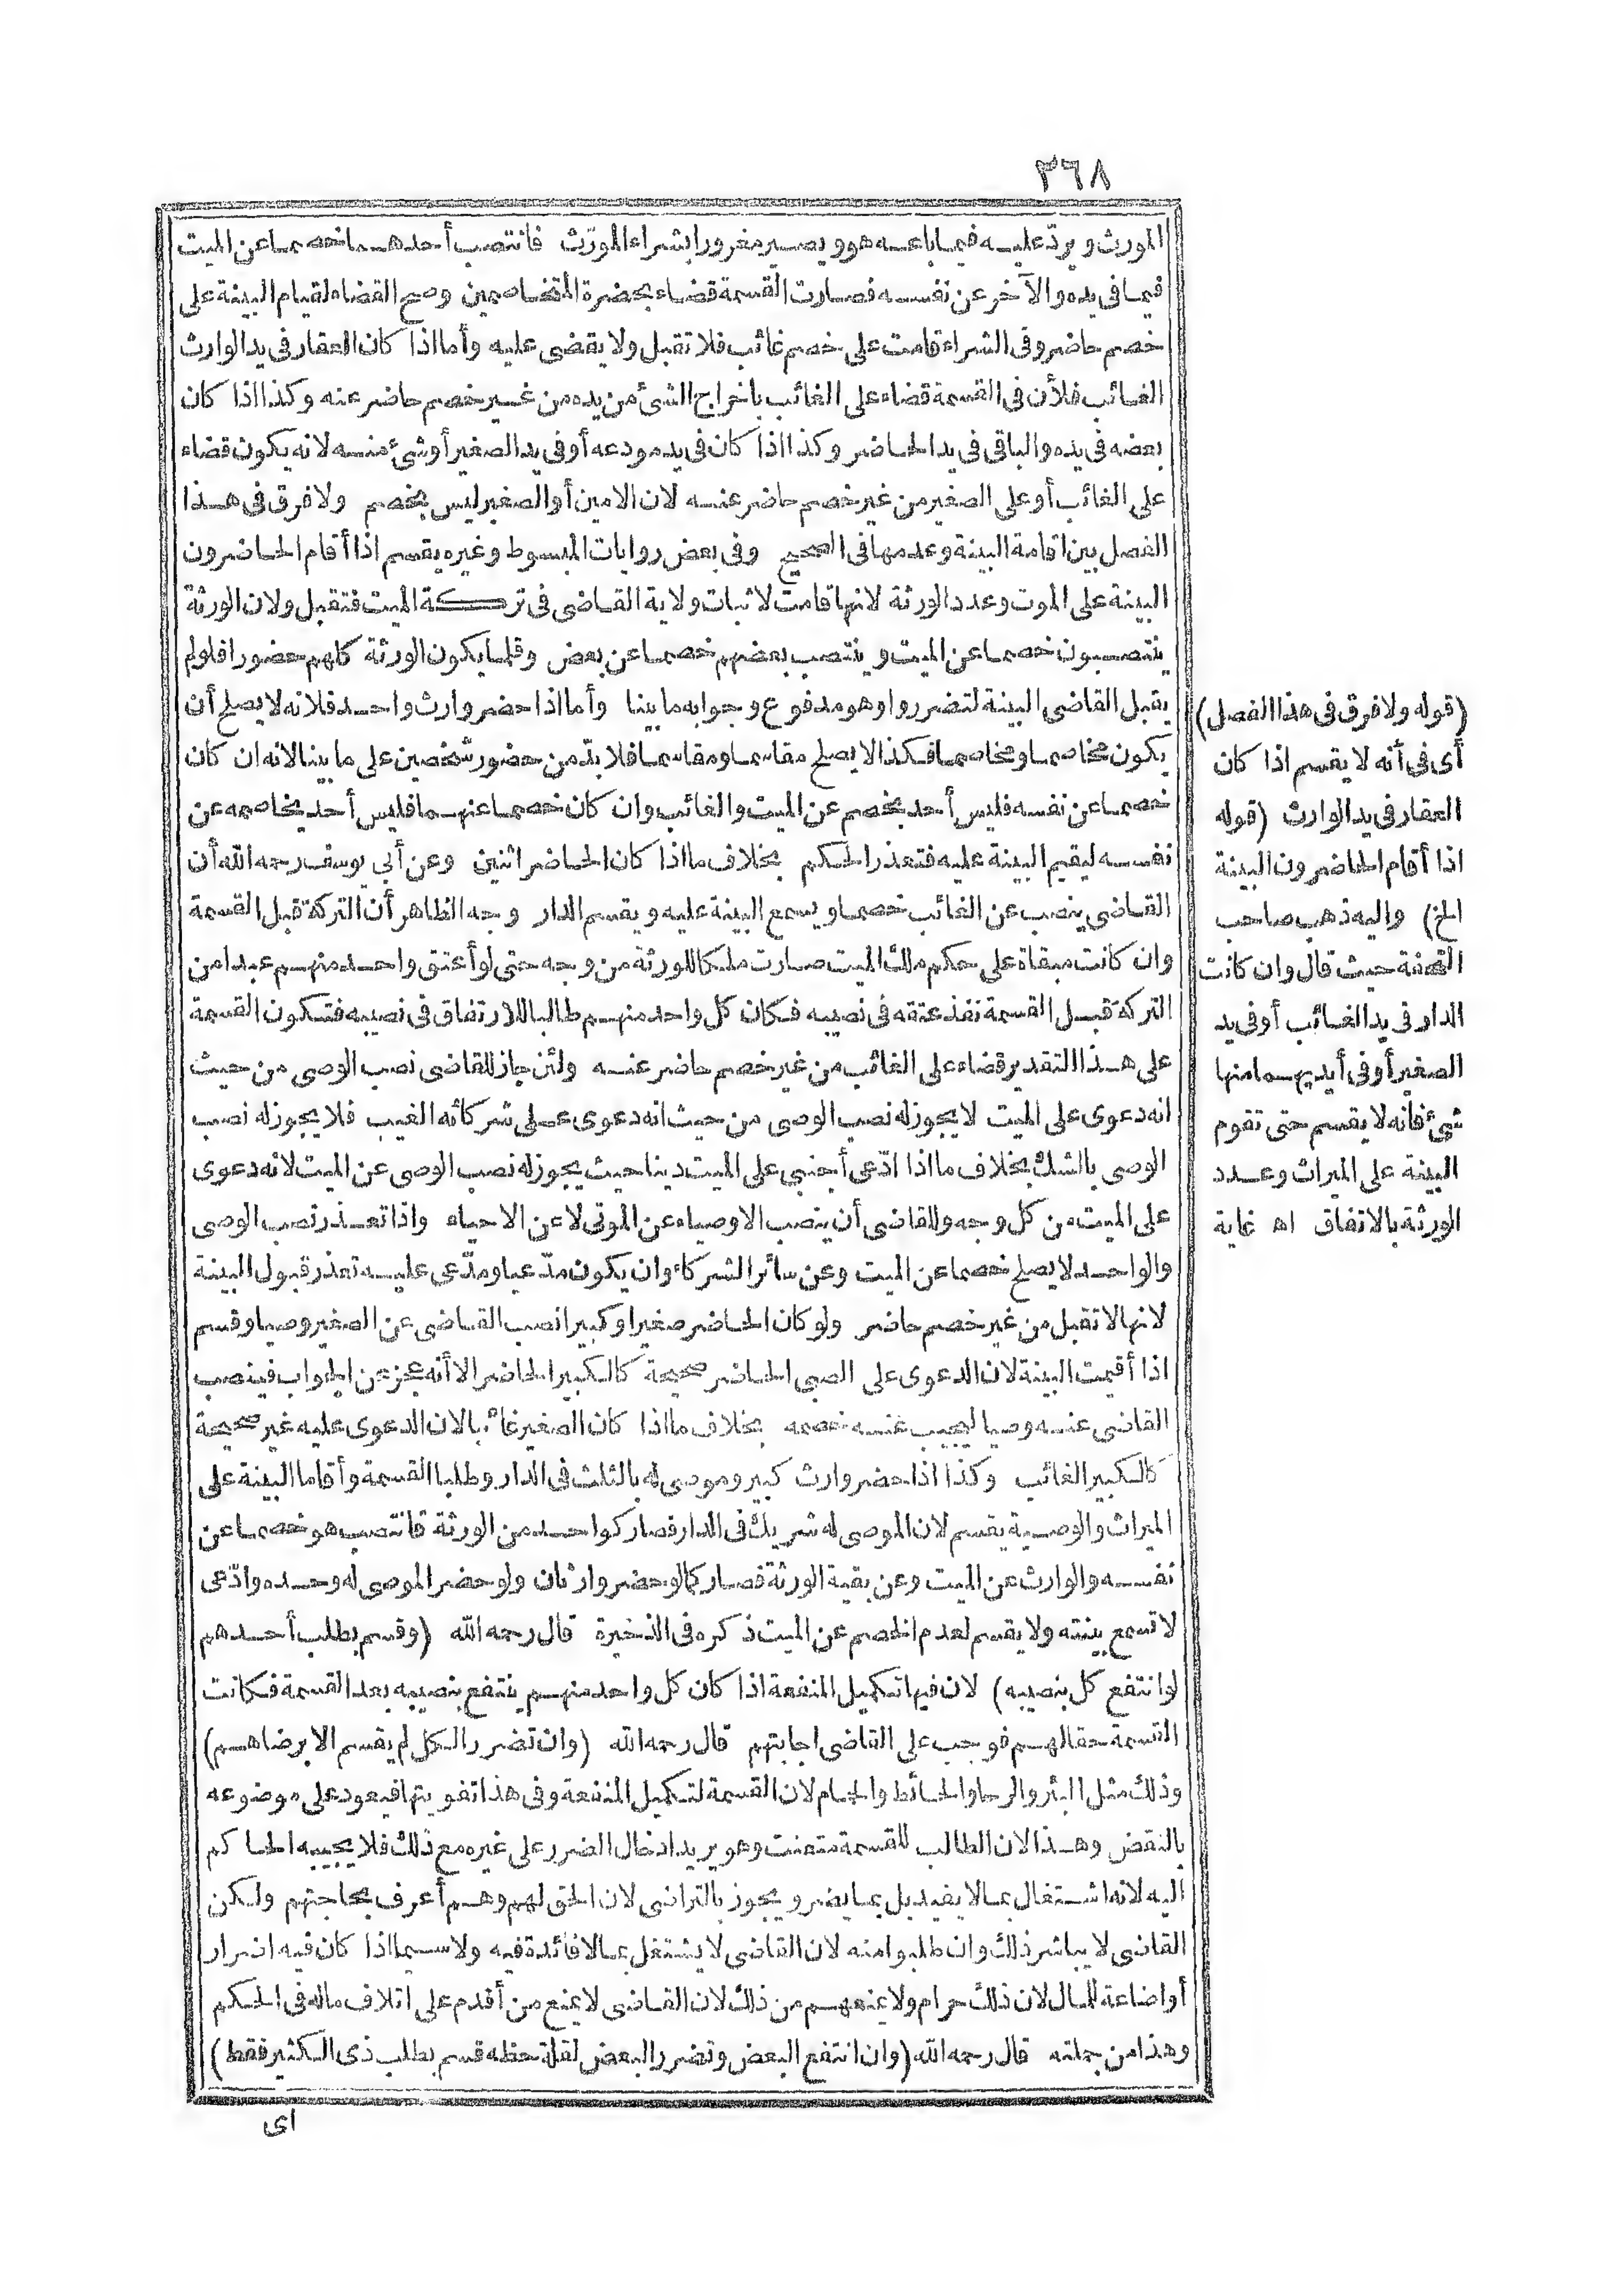 ٢٦٨
المورث ويردّ عليه فيما باعه هو ويصير مغرورا بشراء المورّث فانتصب أحدهما خصما عن الميت
فيما فى يده والآخر عن نفسه فصارت القسمة قضاء بحضرة المتخاصمين وصح القضاء لقيام البينة على
خصم حاضر وفى الشراء قامت على خصم غائب فلا تقبل ولا يقضى عليه وأما اذا كان العقار فى يد الوارث
الغائب فلأن فى القسمة قضاء على الغائب باخراج الشئ من يده من غير خصم حاضر عنه وكذا اذا كان
بعضه فى يده والباقى فى يد الحاضر وكذا اذا كان فى يد مودعه أو فى يد الصغير أو شئ منه لانه يكون قضاء
على الغائب أو على الصغير من غير خصم حاضر عنه لان الامين أو الصغير ليس بخصم ولا فرق فى هذا
الفصل بين اقامة البينة وعدمها فى الصحيح وفى بعض روايات المبسوط وغيره يقسم اذا أقام الحاضرون
البينة على الموت وعدد الورثة لانها قامت لاثبات ولاية القاضى فى تركة الميت فتقبل ولان الورثة
ينتصبون خصما عن الميت وينتصب بعضهم خصما عن بعض وقلما يكون الورثة كلهم حضورا فلو لم
يقبل القاضى البينة لتضرروا وهو مدفوع وجوابه ما بينا وأما اذا حضر وارث واحد فلانه لا يصلح أن
يكون مخاصما ومخاصما فكذا لا يصلح مقاسما ومقاسما فلا بدّ من حضور شخصين على ما بينا لانه ان كان
خصما عن نفسه فليس أحد بخصم عن الميت والغائب وان كان خصما عنهما فليس أحد يخاصمه عن
نفسه ليقيم البينة عليه فتعذر الحكم بخلاف ما اذا كان الحاضر اثنين وعن أبى يوسف رحمه الله أن
القاضى ينصب عن الغائب خصما ويسمع البينة عليه ويقسم الدار وجه الظاهر أن التركة قبل القسمة
وان كانت مبقاة على حكم ملك الميت صارت ملكا للورثة من وجه حتى لو أعتق واحد منهم عبدا من
التركة قبل القسمة نفذ عتقه فى نصيبه فكان كل واحد منهم طالبا للارتفاق فى نصيبه فتكون القسمة
على هذا التقدير قضاء على الغائب من غير خصم حاضر عنه ولئن جاز للقاضى نصب الوصى من حيث
انه دعوى على الميت لا يجوز له نصب الوصى من حيث انه دعوى على شركائه الغيب فلا يجوز له نصب
الوصى بالشك بخلاف ما اذا ادّعى أجنبى على الميت دينا حيث يجوز له نصب الوصى عن الميت لانه دعوى
على الميت من كل وجه وللقاضى أن ينصب الاوصياء عن الموتى لا عن الاحياء واذا تعذر نصب الوصى
والواحد لا يصلح خصما عن الميت وعن سائر الشركاء وان يكون مدّعيا ومدّعى عليه تعذر قبول البينة
لانها لا تقبل من غير خصم حاضر ولو كان الحاضر صغيرا وكبيرا نصب القاضى عن الصغير وصيا وقسم
اذا أقيمت البينة لان الدعوى على الصبى الحاضر صحيحة كالكبير الحاضر الا أنه عجز عن الجواب فينصب
القاضى عنه وصيا ليجيب عنه خصمه بخلاف ما اذا كان الصغير غائبا لان الدعوى عليه غير صحيحة
كالكبير الغائب وكذا اذا حضر وارث كبير وموصى له بالثلث فى الدار وطلبا القسمة وأقاما البينة على
الميراث والوصية يقسم لان الموصى له شريك فى الدار فصار كواحد من الورثة فانتصب هو خصما عن
نفسه والوارث عن الميت وعن بقية الورثة فصار كما لو حضر وارثان ولو حضر الموصى له وحده وادّعى
لا تسمع بينته ولا يقسم لعدم الخصم عن الميت ذكره فى الذخيرة قال رحمه الله (وقسم بطلب أحدهم
لو انتفع كل بنصيبه) لان فيها تكميل المنفعة اذا كان كل واحد منهم ينتفع بنصيبه بعد القسمة فكانت
القسمة حقا لهم فوجب على القاضى اجابتهم قال رحمه الله (وان تضرر الكل لم يقسم الا برضاهم)
وذلك مثل البئر والرحا والحائط والحمام لان القسمة لتكميل المنفعة وفى هذا تفويتها فيعود على موضوعه
بالنقض وهذا لان الطالب للقسمة متعنت وهو يريد ادخال الضرر على غيره مع ذلك فلا يجيبه الحاكم
اليه لانه اشتغال بما لا يفيد بل بما يضر ويجوز بالتراضى لان الحق لهم وهم أعرف بحاجتهم ولكن
القاضى لا يباشر ذلك وان طلبوا منه لان القاضى لا يشتغل بما لا فائدة فيه ولا سيما اذا كان فيه اضرار
أو اضاعة للمال لان ذلك حرام ولا يمنعهم من ذلك لان القاضى لا يمنع من أقدم على اتلاف ماله فى الحكم
وهذا من جملته قال رحمه الله (وان انتفع البعض وتضرر البعض لقلة حظه قسم بطلب ذى الكثير فقط)
اى
(قوله ولا فرق فى هذا الفصل)
أى فى أنه لا يقسم اذا كان
العقار فى يد الوارث (قوله
اذا أقام الحاضرون البينة
الخ) واليه ذهب صاحب
التحفة حيث قال وان كانت
الدار فى يد الغائب أو فى يد
الصغير أو فى أيديهما منها
شئ فانه لا يقسم حتى تقوم
البينة على الميراث وعدد
الورثة بالاتفاق اه غاية